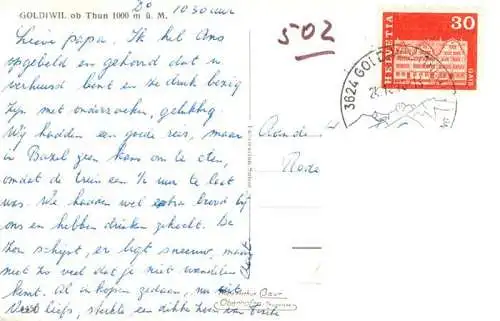 Do 1030 uur
GOLDIWIL ob Thun 1000 m ü. M.
502
HELVETIA
30
GAIS
3624 GOLDIWIL
Lieve papa. Ik heb Ans
opgebeld en gehoord dat u
verhuisd bent en ze druk bezig
zijn met onderzoeken, gelukkig
Wij hadden een goede reis, maar
in Bazel geen kans om te eten,
omdat de trein een 1/2 uur te laat
was. We hadden wel extra brood bij
ons en hebben drinken gekocht. De
zon schijnt, er ligt sneeuw, maar
niet zo veel dat je niet wandelen
kunt. Al inkopen gedaan, nu
liefs, sterkte en een dikke zoen van
Aan de
Rode